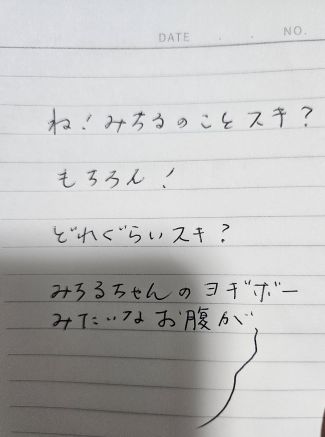 DATE . . NO.
ね!みちるのことスキ?
もちろん!
どれぐらいスキ?
みちるちゃんのヨギボー
みたいなお腹が